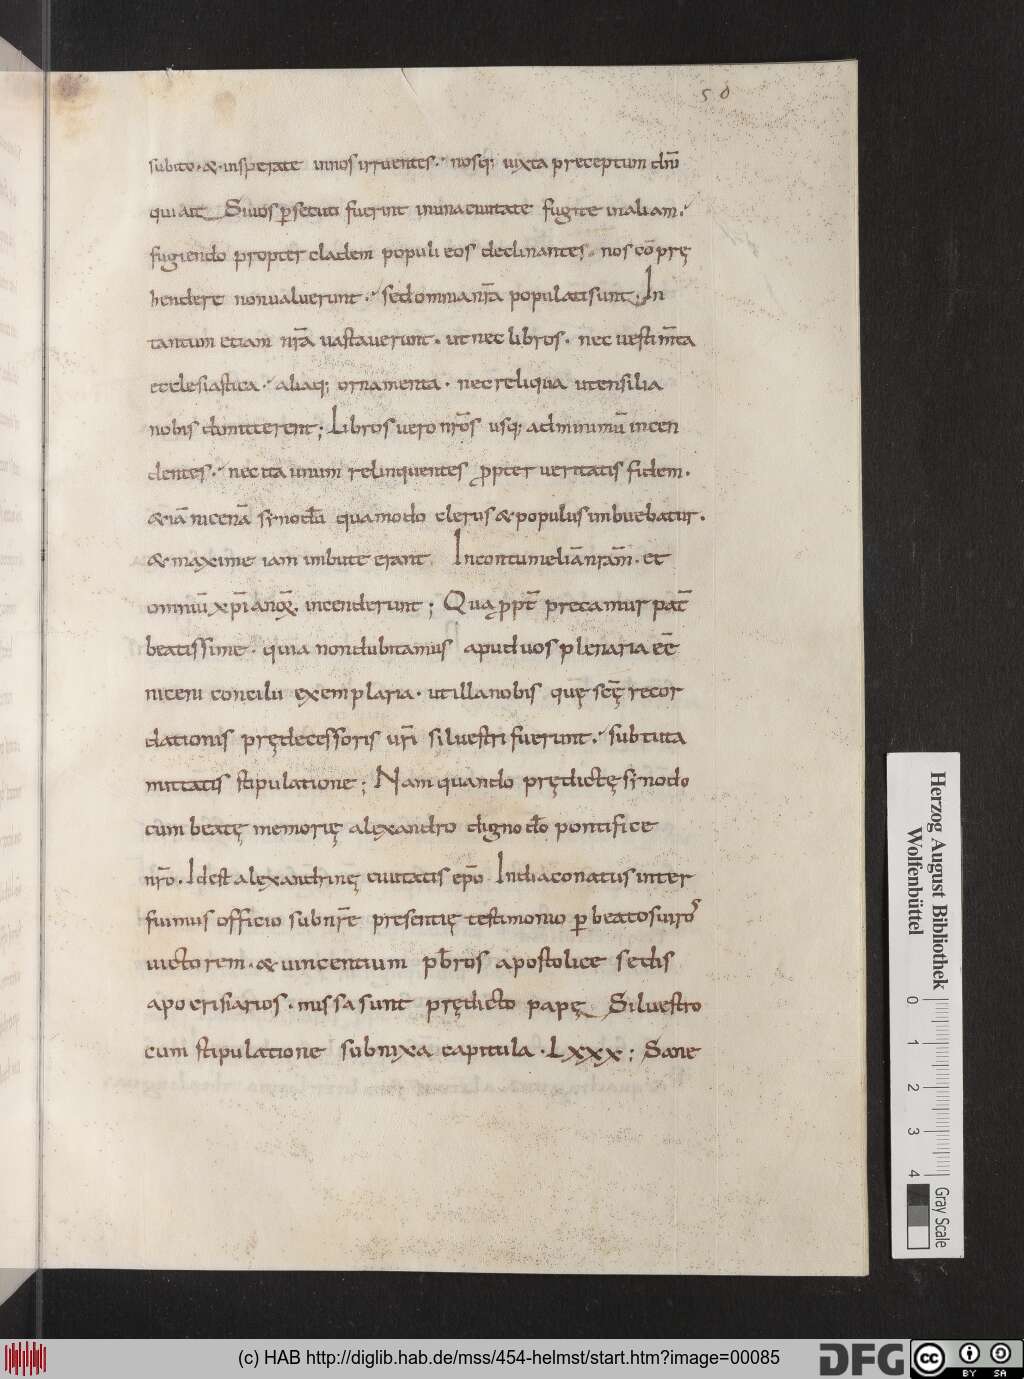 50
subito · & · insperate innos irruentes · nosq; iuxta preceptum dnī
qui ait Siuos p̱secuti fuerint inunaciuitate fugite inaliam ·
fugiendo propter cladem populi eos declinantes · nos cōprę
hendere nonualuerunt · sedomnianr̄a populatisunt · In
tantum etiam nr̄a uastauerunt · utnec libros · nec uestim̄ta
ecclesiastica · aliaq; ornamenta · necreliqua utensilia
nobis dimitterent ; Libros uero nr̄os usq; adminimū incen
dentes · nec ita unum relinquentes p̱pter ueritatis fidem ·
&iā nicenā sinodū quamodo clerus & populus imbuebatur ·
& maxime iam imbute erant Incontumeliānrām̄ · et
omniū xp̄ianoꝝ incenderunt ; Qua p̱pt̄ precamur pat̄
beatissime · quia nondubitamus apud uos plenaria eē
niceni concilii exemplaria · utillanobis quę scę̄ recor
dationis prędecessoris ur̄i siluestri fuerunt · subtuta
mittatis stipulatione ; Nam quando prędictę sinodo
cum beatę memorię alexandro digno dō pontifice
nr̄o · Idest alexandrinę ciuitatis epō Indiaconatus inter
fuimus officio subnr̄e presentię testimonio p̱ beatosuiros
uictorem · & uincentium pb̄ros apostolice sedis
apocrisiarios · missa sunt prędicto papę Siluestro
cum stipulatione subnixa capitula · Lxxx ; Sane
Herzog August Bibliothek
Wolfenbüttel
0 1 2 3 4
Gray Scale
(c) HAB http://diglib.hab.de/mss/454-helmst/start.htm?image=00085
DFG
cc BY SA